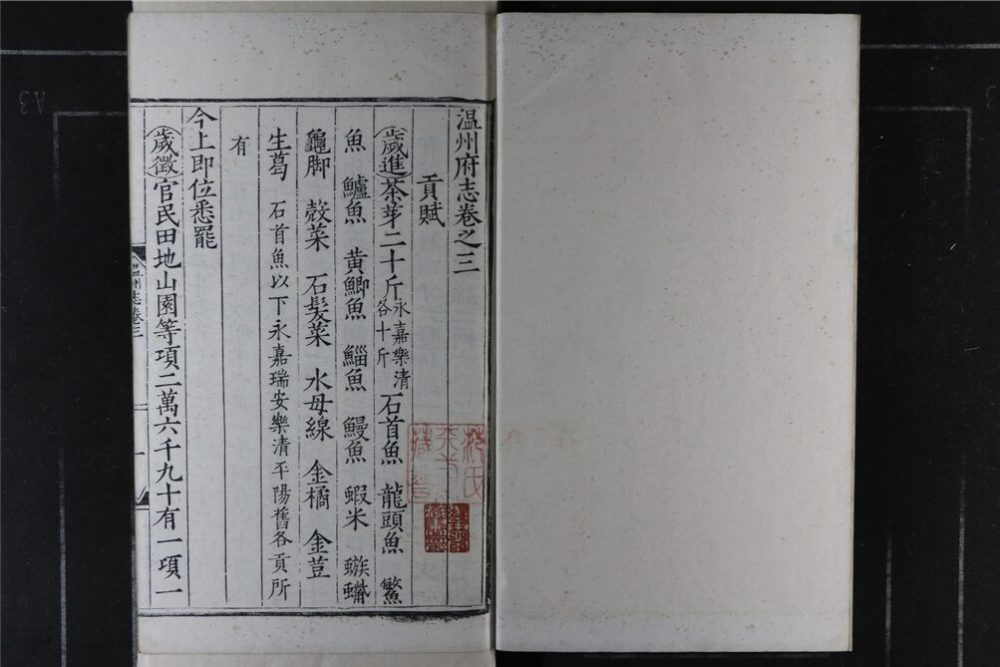 温州府志卷之三
貢賦
歲進茶芽二十斤永嘉樂清各十斤石首魚 龍頭魚 鰵
魚 鱸魚 黄鯽魚 鯔魚 鰻魚 蝦米
龜脚 殼菜 石髮菜 水母線 金橘 金荳
生葛 石首魚以下永嘉瑞安樂清平陽舊各貢所
有
今上即位悉罷
歲徵官民田地山園等項二萬六千九十有一項一
温州志卷三
一